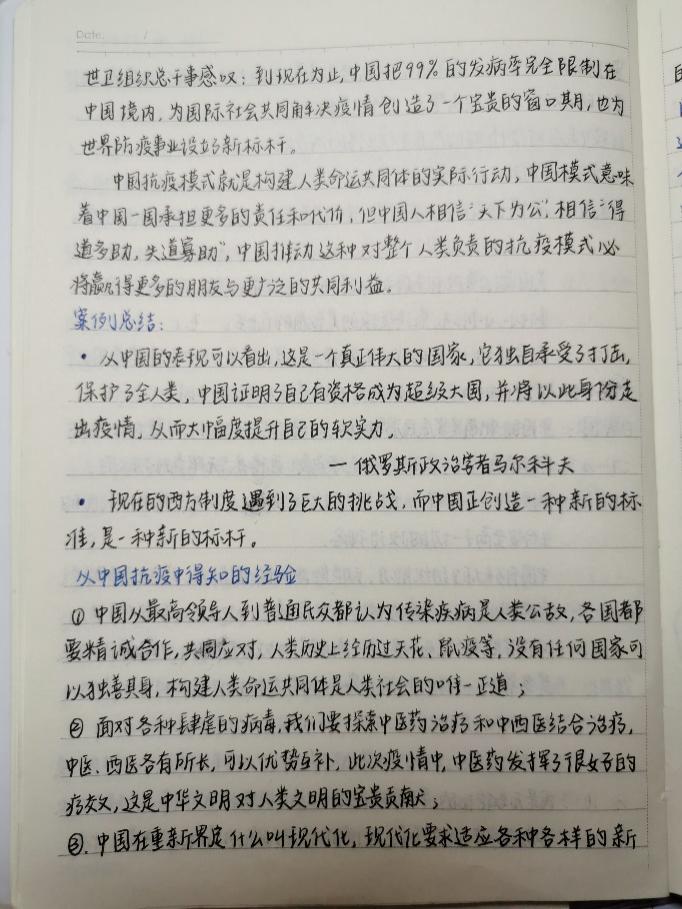 Date. /
世卫组织总干事感叹：到现在为止，中国把99%的发病率完全限制在
中国境内，为国际社会共同解决疫情创造了一个宝贵的窗口期，也为
世界防疫事业设立了新标杆。
中国抗疫模式就是构建人类命运共同体的实际行动，中国模式意味
着中国一国承担更多的责任和代价，但中国人相信“天下为公”，相信“得
道多助，失道寡助”，中国推动这种对整个人类负责的抗疫模式必
将赢得更多的朋友与更广泛的共同利益。
案例总结：
• 从中国的表现可以看出，这是一个真正伟大的国家，它独自承受了打击，
保护了全人类，中国证明了自己有资格成为超级大国，并将以此身份走
出疫情，从而大幅度提升自己的软实力。
— 俄罗斯政治学者马尔科夫
• 现在的西方制度遇到了巨大的挑战，而中国正创造一种新的标
准，是一种新的标杆。
从中国抗疫中得知的经验
① 中国从最高领导人到普通民众都认为传染疾病是人类公敌，各国都
要精诚合作，共同应对，人类历史上经历过天花、鼠疫等，没有任何国家可
以独善其身，构建人类命运共同体是人类社会的唯一正道；
② 面对各种肆虐的病毒，我们要探索中医药治疗和中西医结合治疗，
中医、西医各有所长，可以优势互补，此次疫情中，中医药发挥了很好的
疗效，这是中华文明对人类文明的宝贵贡献；
③. 中国在重新界定什么叫现代化，现代化要求适应各种各样的新